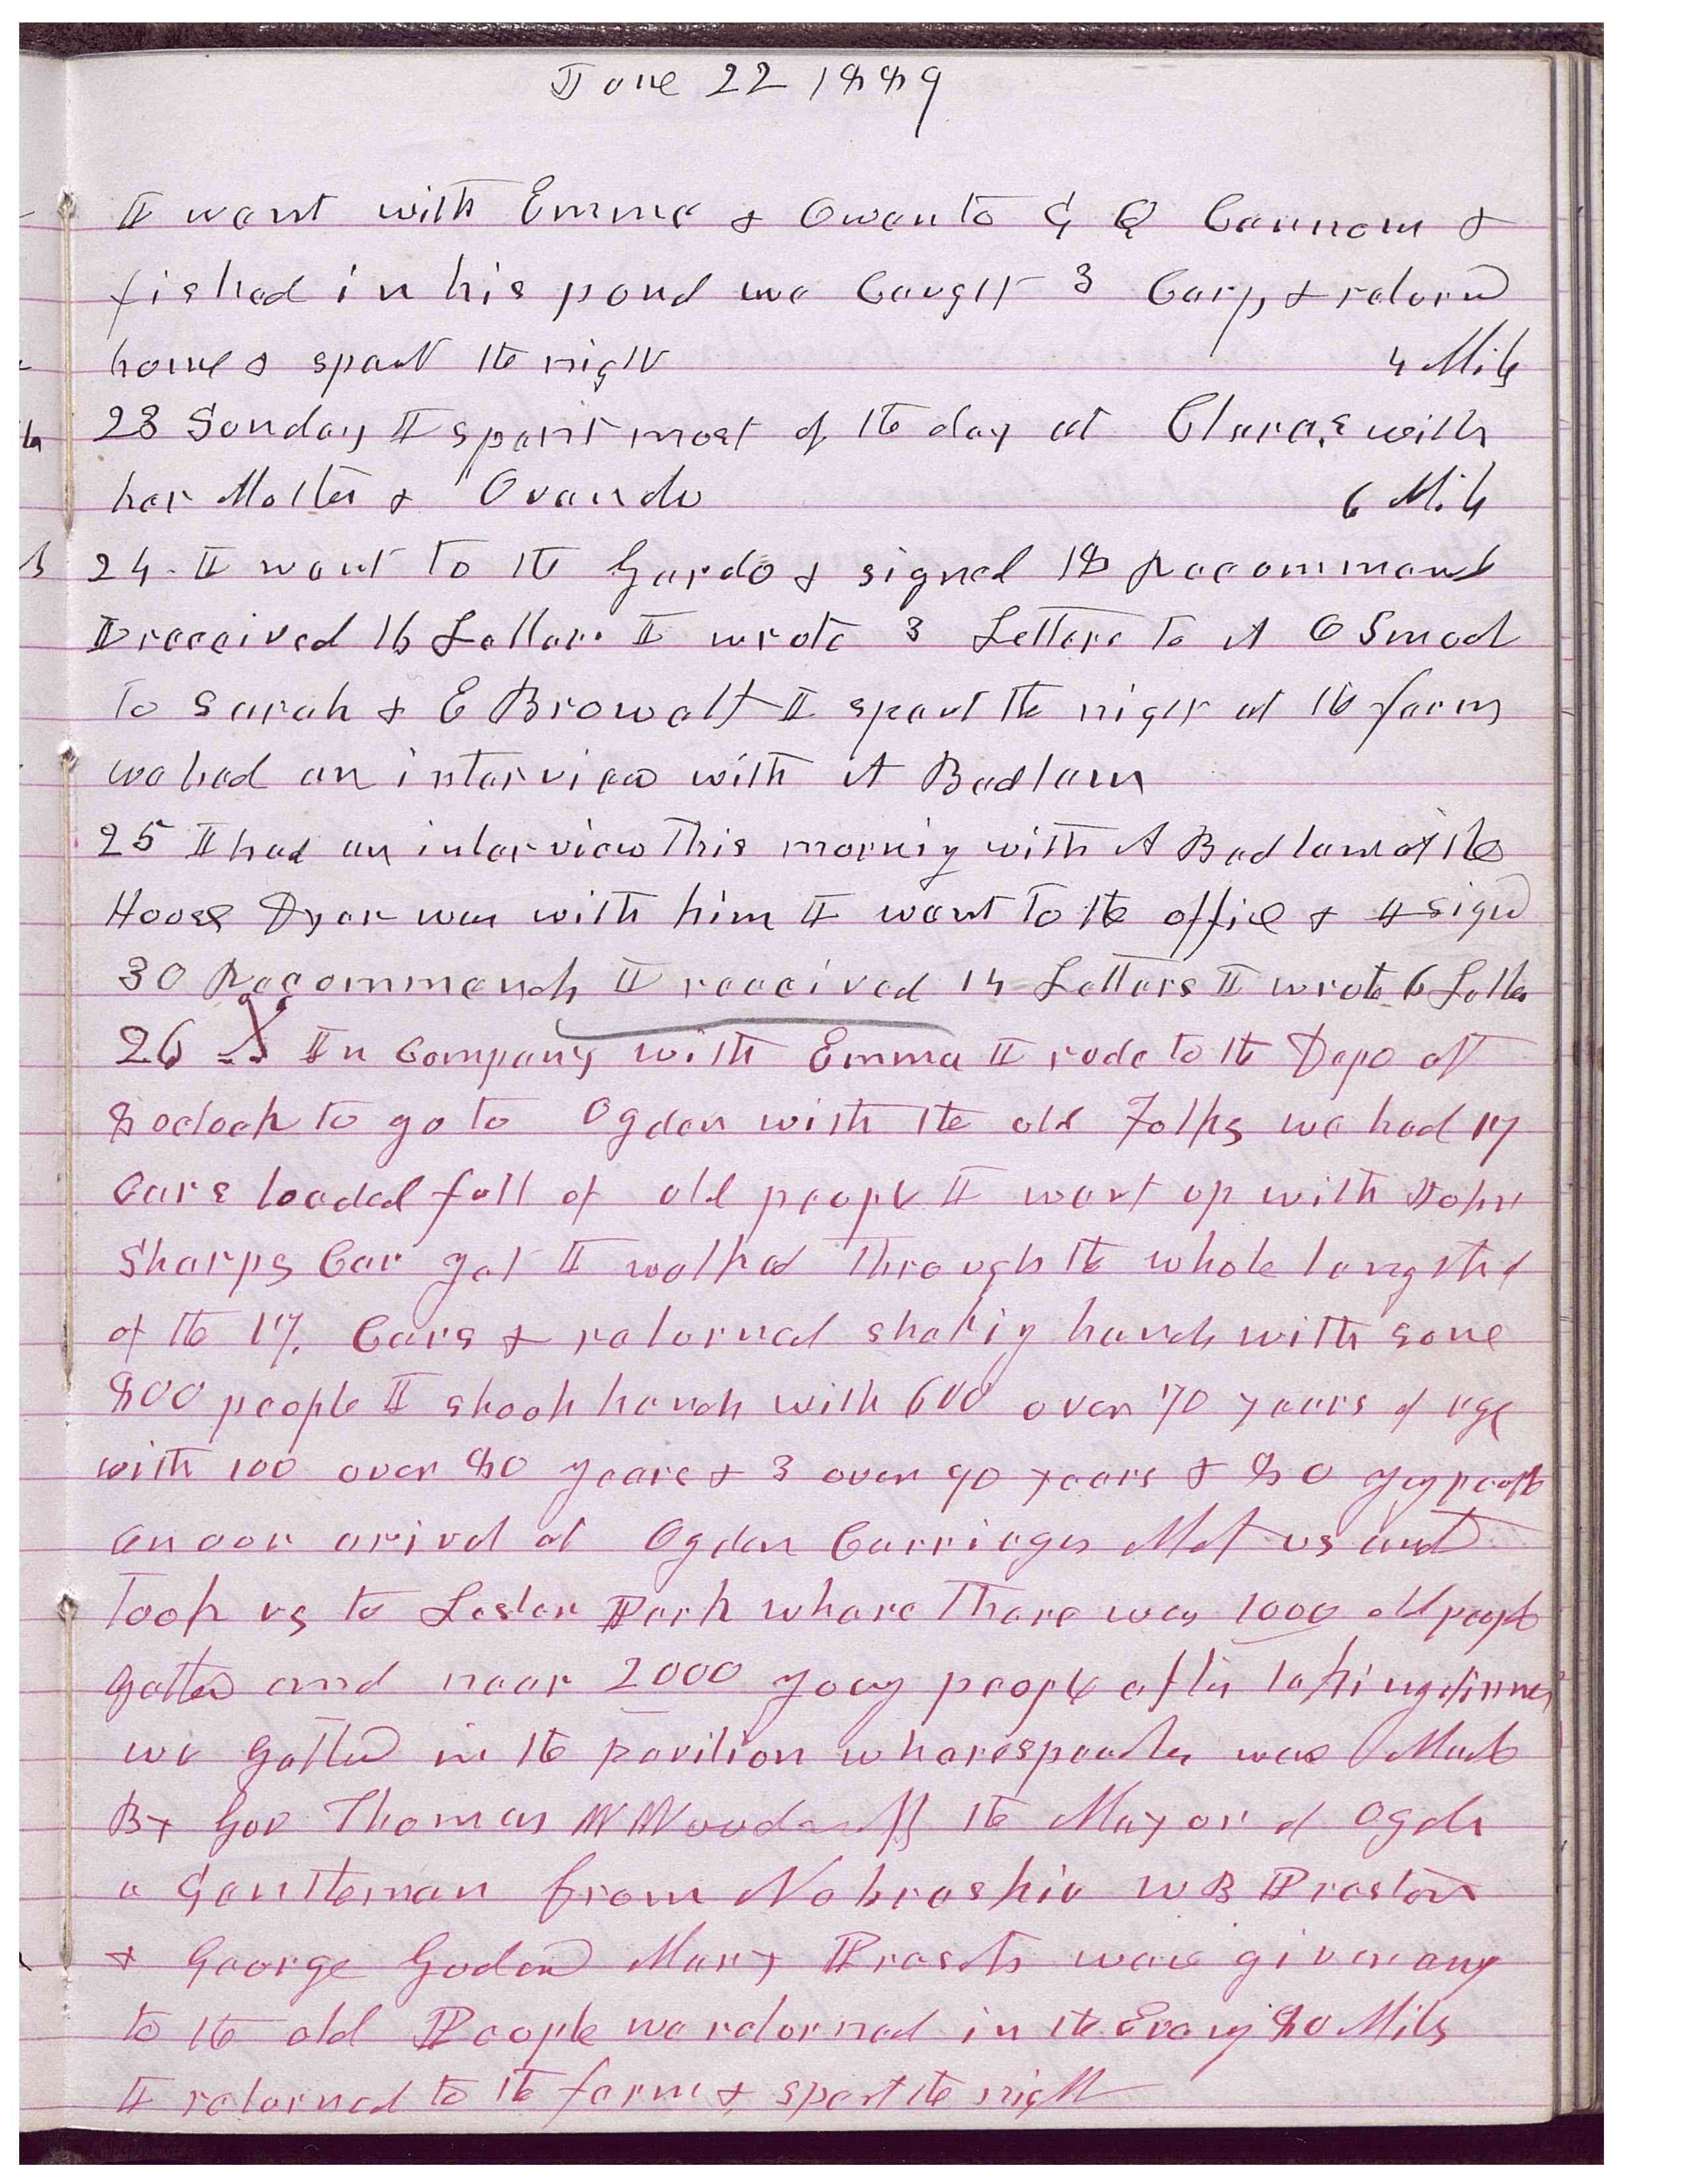 June 22 1889
I went with Emma & Owen to G Q Cannon &
fished in his pond we Caught 3 Carp & return
home & spent the night 4 Mils
23 Sunday I spent most of the day at Claras with
her Mother & Ovando 6 Mils
24 I went to the Gardo & signed 18 Recommends
I received 16 Letters I wrote 3 Letters to A O Smoot
to Sarah & E Browett I spent the night at the farm
we had an interview with A Badlam
25 I had an interview this morning with A Badlam at the
House Dyer was with him I went to the office & I signd
30 Recommends I received 14 Letters I wrote 6 Letters
26 In Company with Emma I rode to the Depo at
8 oclock to go to Ogden with the old Folks we had 17
Cars loaded full of old people I went up with John
Sharps Car yet I walked through the whole length
of the 17 Cars & returned shakig hands with some
800 people I shook hands with 600 over 70 years of age
with 100 over 80 years & 3 over 90 years & 80 yg people
an our arivd at Ogden Carriages Met us and
took us to Lester Park whare thare was 1000 old people
gatherd and near 2000 young people after taking dinner
we gatherd in the pavilion whare speaches was Made
By Gov Thomas W Woodruff the Mayor of Ogden
a Gentleman from Nebraskia W B Preston
& George Godard Many Presets ware given away
to the old People we returned in the Evenig 80 Mils
I returned to the farm & spent the night